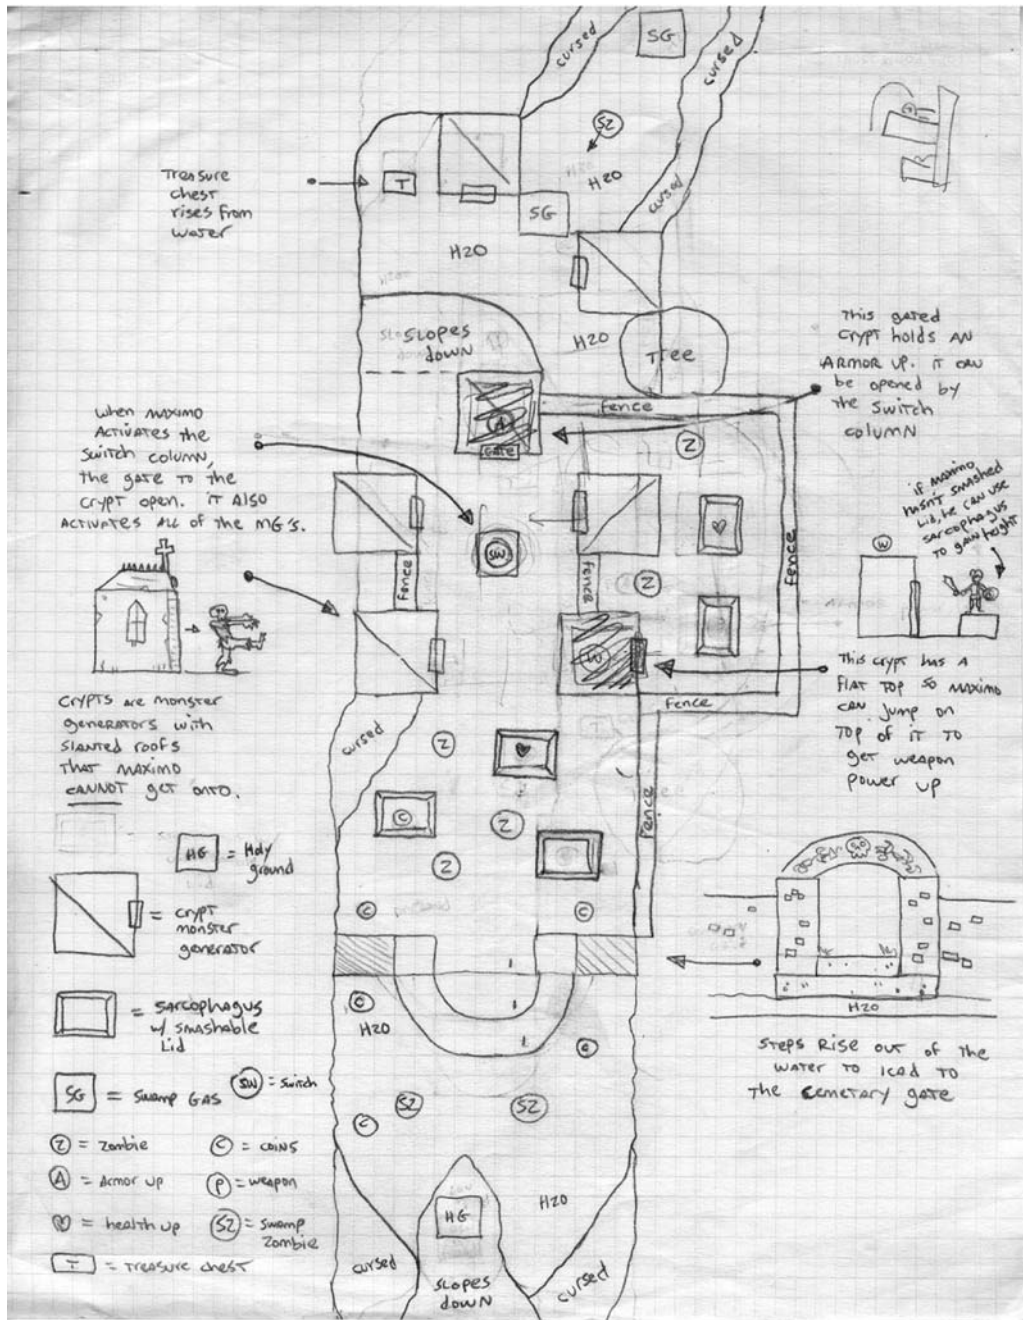 cursed
SG
cursed
SZ
H20
cursed
Treasure
chest
rises from
water
T
SG
H20
SLOPES
down
H20
Tree
This gated
crypt holds an
ARMOR UP. it can
be opened by
the switch
column
fence
A
GATE
Z
when MAXIMO
ACTIVATES the
switch column,
the gate to the
crypt open. it also
ACTIVATES ALL of the MG'S.
SW
fence
fence
Z
fence
if MAXIMO
hasn't smashed
Lid, he can use
sarcophagus
to gain height
W
W
This crypt has a
flat top so MAXIMO
can jump on
top of it to
get weapon
power up
fence
Crypts are monster
generators with
slanted roofs
that MAXIMO
CANNOT get onto.
cursed
Z
C
Z
Z
fence
C
C
HG = Holy
ground
= crypt
monster
generator
= SARCOPHAGUS
w/ smashable
Lid
SG = Swamp GAS
SW = Switch
Z = Zombie
C = coins
A = Armor up
P = weapon
= health up
SZ = swamp
Zombie
T = Treasure chest
C
H20
C
SZ
SZ
C
H20
HG
cursed
SLOPES
down
cursed
H20
STEPS RISE out of the
water to lead to
the cemetary gate